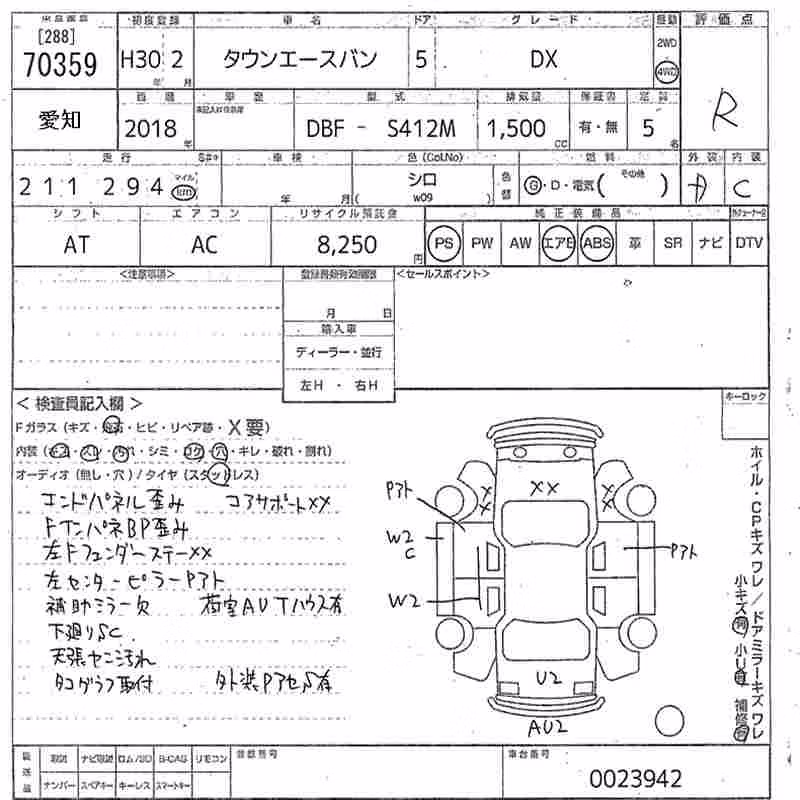 出品番号 初度登録 車 名 ドア グ レ ー ド 駆動 評 価 点
[288]
70359 H30 2 年 月 タウンエースバン 5 DX 2WD 4WD R
愛知
西 暦 車 歴 型 式 排気量 保証書 定 員
2018 年 DBF - S412M 1,500 cc 有・無 5 名
走 行 S#* 車 検 色 (Col.No) 燃 料 その他 外 装 内 装
211 294 マイル km 年 月 シロ ( w09 ) 色替 G・D・電気( ) A C
シ フ ト エ ア コ ン リサイクル預託金 純 正 装 備 品
AT AC 8,250 円 PS PW AW エアB ABS 革 SR ナビ DTV
<注意事項> 登録書類有効期限 <セールスポイント>
月 日
輸入車
ディーラー・並行
左H ・ 右H
< 検査員記入欄 > キーロック
Fガラス (キズ・飛石・ヒビ・リペア跡・X要)
内装 (キズ・スレ・汚れ・シミ・コゲ・穴・キレ・破れ・割れ)
オーディオ (無し・穴) / タイヤ (スタッドレス)
エンドパネル歪み コアサポートXX
FインパネBP歪み
左Fフェンダーステー××
左センターピラーPアト
補助ミラー欠 荷室AUTハウス有
下廻りSC
天張ヤニ汚れ
タコグラフ取付 外装PアセS有
Pアト
XX
XX
XX
W2
C
Pアト
W2
U2
AU2
ホイル・CPキズ ワレ / ドアミラーキズ ワレ
小キズ有 小U有 補修有
取説 ナビ取説 ロム/SD B-CAS リモコン 登録番号 車台番号
ナンバー スペアキー キーレス スマートキー
0023942